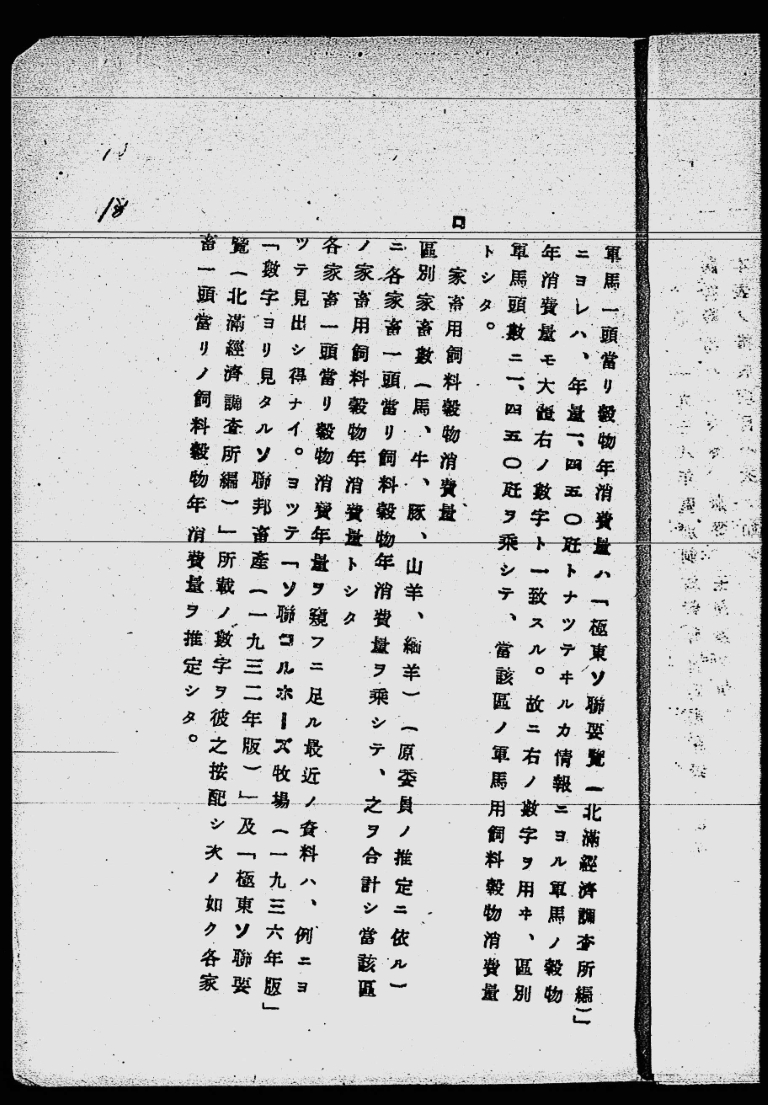 軍馬一頭當リ穀物年消費量ハ「極東ソ聯要覽(北滿經濟調査所編)」
ニヨレハ、年量一、四五〇瓩トナツテヰルカ情報ニヨル軍馬ノ穀物
年消費量モ大體右ノ數字ト一致スル。故ニ右ノ數字ヲ用ヰ、區別
軍馬頭數ニ一、四五〇瓩ヲ乘シテ、當該區ノ軍馬用飼料穀物消費量
トシタ。
ロ 家畜用飼料穀物消費量
區別家畜數(馬、牛、豚、山羊、緬羊)(原委員ノ推定ニ依ル)
ニ各家畜一頭當リ飼料穀物年消費量ヲ乘シテ、之ヲ合計シ當該區
ノ家畜用飼料穀物年消費量トシタ
各家畜一頭當リ穀物消費年量ヲ窺フニ足ル最近ノ資料ハ、例ニヨ
ツテ見出シ得ナイ。ヨツテ「ソ聯コルホーズ牧場(一九三六年版)」
「數字ヨリ見タルソ聯邦畜產(一九三二年版)」及「極東ソ聯要
覽(北滿經濟調査所編)」所載ノ數字ヲ彼之按配シ次ノ如ク各家
畜一頭當リノ飼料穀物年消費量ヲ推定シタ。
18